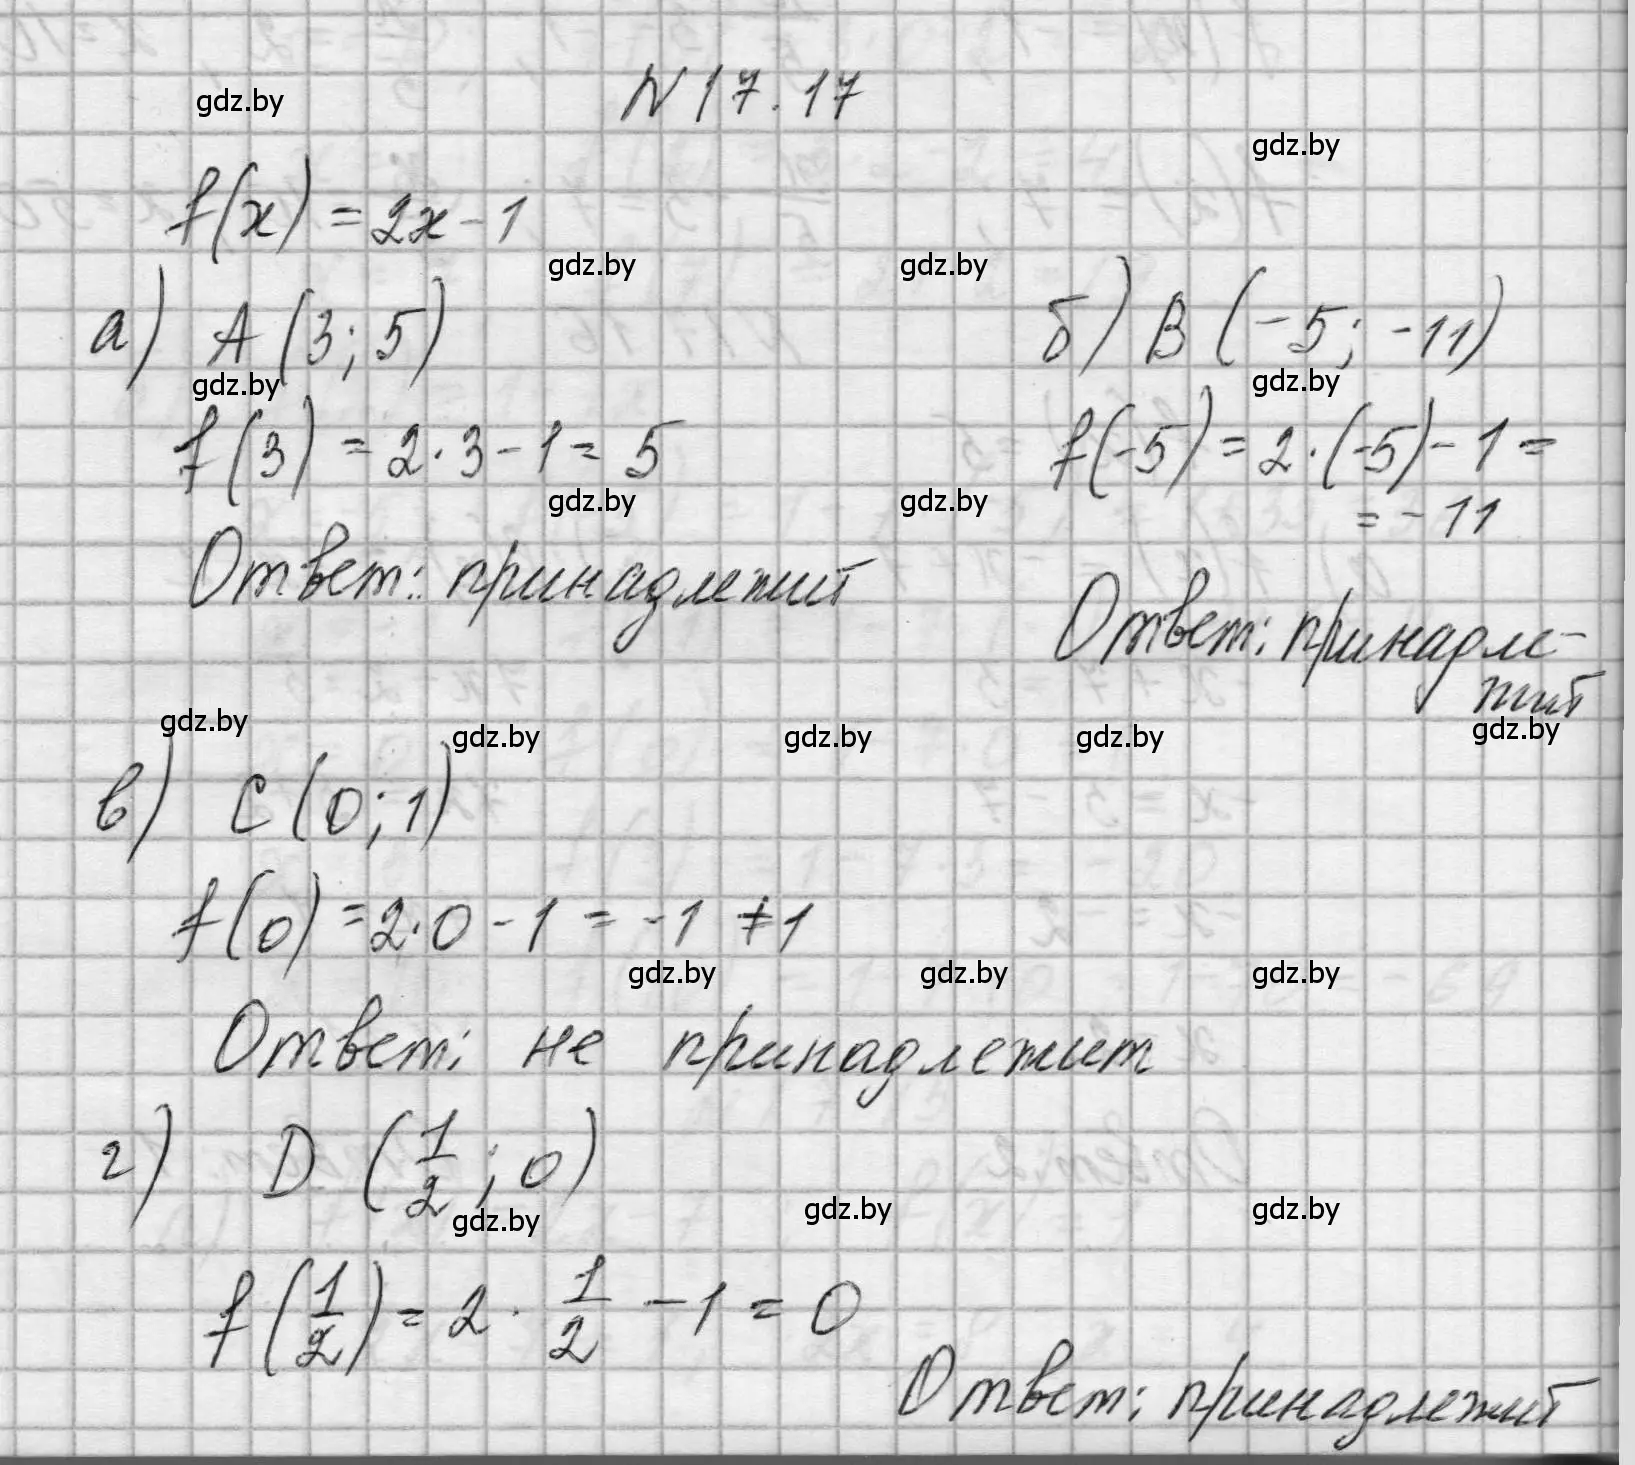 N 17.17
gdz.by
gdz.by
f(x) = 2x - 1
gdz.by gdz.by
а) A (3; 5)
б) B (-5; -11)
gdz.by gdz.by
f(3) = 2·3 - 1 = 5
f(-5) = 2·(-5) - 1 =
= -11
gdz.by gdz.by
Ответ: принадлежит
Ответ: принадле-
жит
gdz.by gdz.by gdz.by gdz.by gdz.by
в) C (0; 1)
f(0) = 2·0 - 1 = -1 ≠ 1
gdz.by gdz.by gdz.by
Ответ: не принадлежит
г) D (1/2; 0)
gdz.by gdz.by gdz.by
f(1/2) = 2 · 1/2 - 1 = 0
Ответ: принадлежит